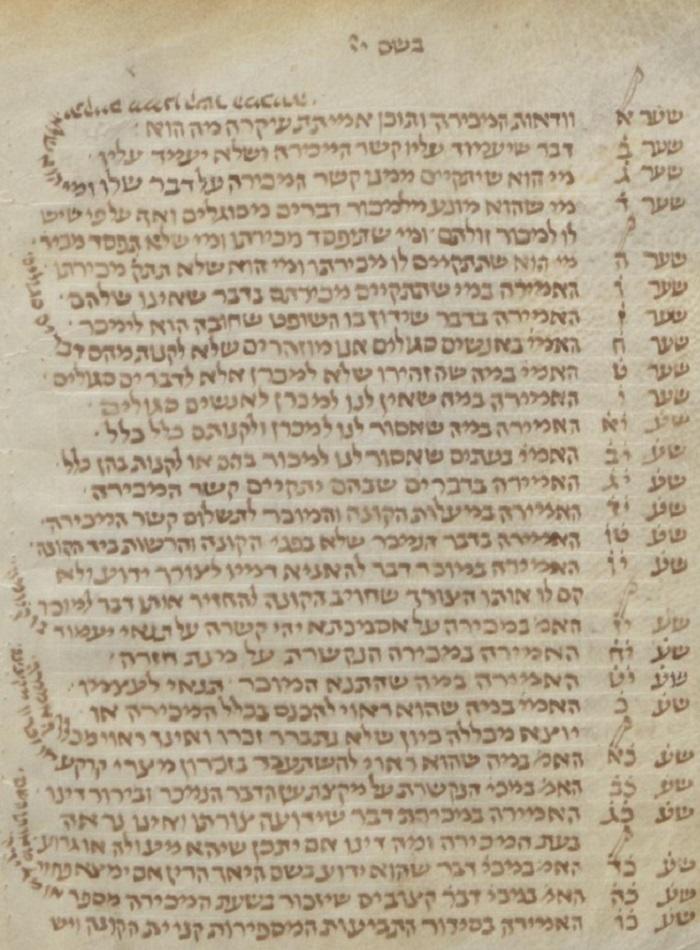 בשם יי
שער א וודאות המכירה ותוכן אמיתת עיקרה מה הוא
שער ב דבר שיעמוד עליו קשר המכירה ושלא יעמוד עליו
שער ג מי הוא שיתקיים ממנו קשר המכירה על דבר שלו ומי
שער ד מי שהוא מונע מלמכור דברים מסוגלים ואף על פי שיש
לו למכור זולתם ומי שתיפסד מכירתו ומי שלא תפסד
שער ה מי הוא שתתקיים לו מכירתו ומי הוא שלא תתק מכירתו
שער ו האמירה במי שתתקיים מכירתם בדבר שאינו שלהם
שער ז האמירה בדבר שידון בו השופט שחובה הוא לימכר
שער ח האמי באנשים סגולים אנו מוזהרים שלא לקנות מהם
שער ט האמי במה שהזהירו שלא למכרן אלא לדברים סגולים
שער י האמירה במה שאין לנו למכרן לאנשים סגולים
שע יא האמירה במה שאסור לנו למכרן ולקנותם כלל כלל
שע יב האמי בעתים שאסור לנו למכור בהם או לקנות בהן כלל
שע יג האמירה בדברים שבהם יתקיים קשר המכירה
שע יד האמירה במעלות הקונה והמוכר לתשלום קשר המכירה
שע טו האמירה בדבר הנמכר שלא בפני הקונה והרשות ביד הקונה
שע יו האמירה במוכר דבר להאניא דמיו לצורך ידוע ולא
קם לו אותו הצורך שחוייב הקונה להחזיר אותו דבר למוכר
שע יז האמ במכירה על אסמכתא יהי קשרה על תנאי יעמוד
שע יח האמירה במכירה הנקשרת על מנת חזרה
שע יט האמירה במה שהתנא המוכר תנאי לעצמו
שע כ האמי במה שהוא ראוי להכנס בכלל המכירה או
יוצא מכללה כיון שלא נתברר זכרו ואינו ראוי
שע כא האמ במה שהוא ראוי להשתעבד בזכרון מצרי קרקע
שע כב האמ במכי הנקשרת על מקצת הדבר הנמכר ובירור דינו
שע כג האמירה במכירת דבר שידועה צורתו ואינו נראה
בעת המכירה ומה דינו אם יתכן שיהא מעולה או גרוע
שע כד האמ במכי דבר שהוא ידוע בשם היאך הדין אם ימצא
שע כה האמ במכי דבר קצובים שיזכור בשעת המכירה מספר
שע כו האמירה בסידור התביעות המספירות קניית הקונה ויש